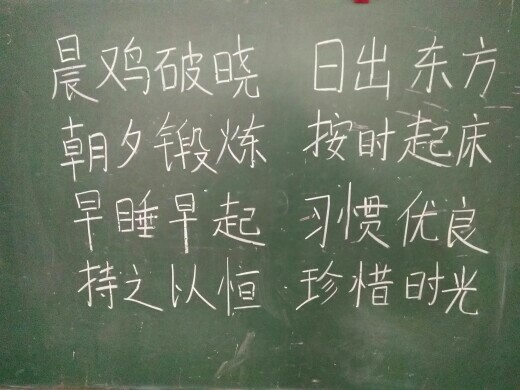 晨鸡破晓 日出东方
朝夕锻炼 按时起床
早睡早起 习惯优良
持之以恒 珍惜时光